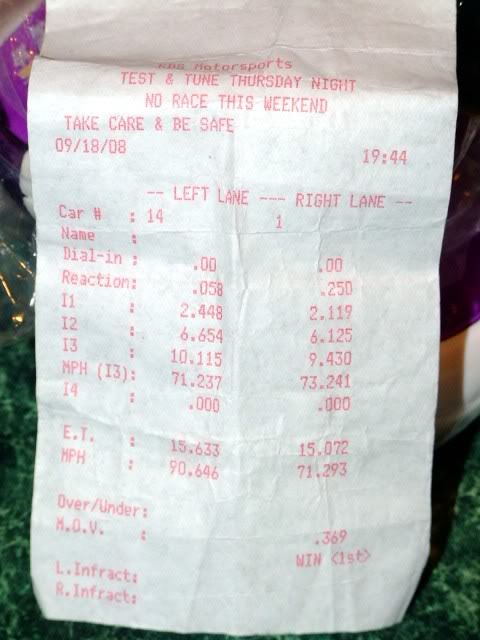 Motorsports
TEST & TUNE THURSDAY NIGHT
NO RACE THIS WEEKEND
TAKE CARE & BE SAFE
09/18/08 19:44
-- LEFT LANE --- RIGHT LANE --
Car # : 14 1
Name :
Dial-in : .00 .00
Reaction: .058 .250
I1 : 2.448 2.119
I2 : 6.654 6.125
I3 : 10.115 9.430
MPH (I3): 71.237 73.241
I4 : .000 .000
E.T. : 15.633 15.072
MPH : 90.646 71.293
Over/Under:
M.O.V. : .369
WIN <1st>
L.Infract:
R.Infract: